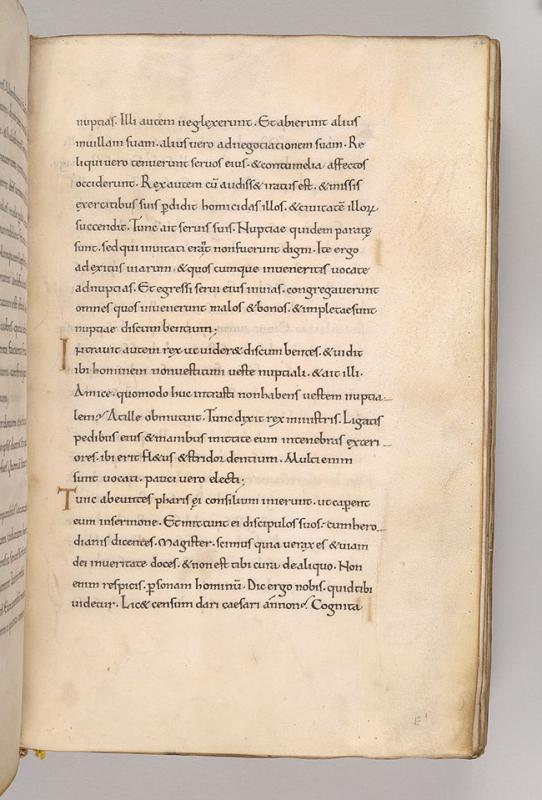 nuptias. Illi autem neglexerunt. Et abierunt alius
inuillam suam. alius uero adnegociationem suam. Re
liqui uero tenuerunt seruos eius. & contumelia affectos
occiderunt. Rex autem cū audiss& iratus est. & missis
exercitibus suis ꝑdidit homicidas illos. & ciuitatē illoꝝ
succendit. Tunc ait seruis suis. Nuptiae quidem paratę
sunt. sed qui inuitati erāt nonfuerunt digni. Ite ergo
adexitus uiarum. & quos cumque inueneritis uocate
adnuptias. Et egressi serui eius inuias. congregauerunt
omnes quos inuenerunt malos & bonos. & impletaesunt
nuptiae discumbentium;
Intrauit autem rex. ut uider& discumbentes. & uidit
ibi hominem nonuestitum ueste nuptiali. & ait illi.
Amice. quomodo huc intrasti nonhabens uestem nuptia
lem? Atille obmutuit. Tunc dixit rex ministris. Ligatis
pedibus eius & manibus mittite eum intenebras exteri
ores. ibi erit fl&us & stridor dentium. Multi enim
sunt uocati. pauci uero electi;
Tunc abeuntes pharisęi consilium inierunt. ut caꝑent
eum insermone. Et mittunt ei discipulos suos. cumhero
dianis dicentes. Magister. scimus quia uerax es & uiam
dei inueritate doces. & non est tibi cura dealiquo. Non
enim respicis ꝑsonam hominū. Dic ergo nobis. quid tibi
uidetur. Lic& censum dari caesari ánnon? Cognita
E